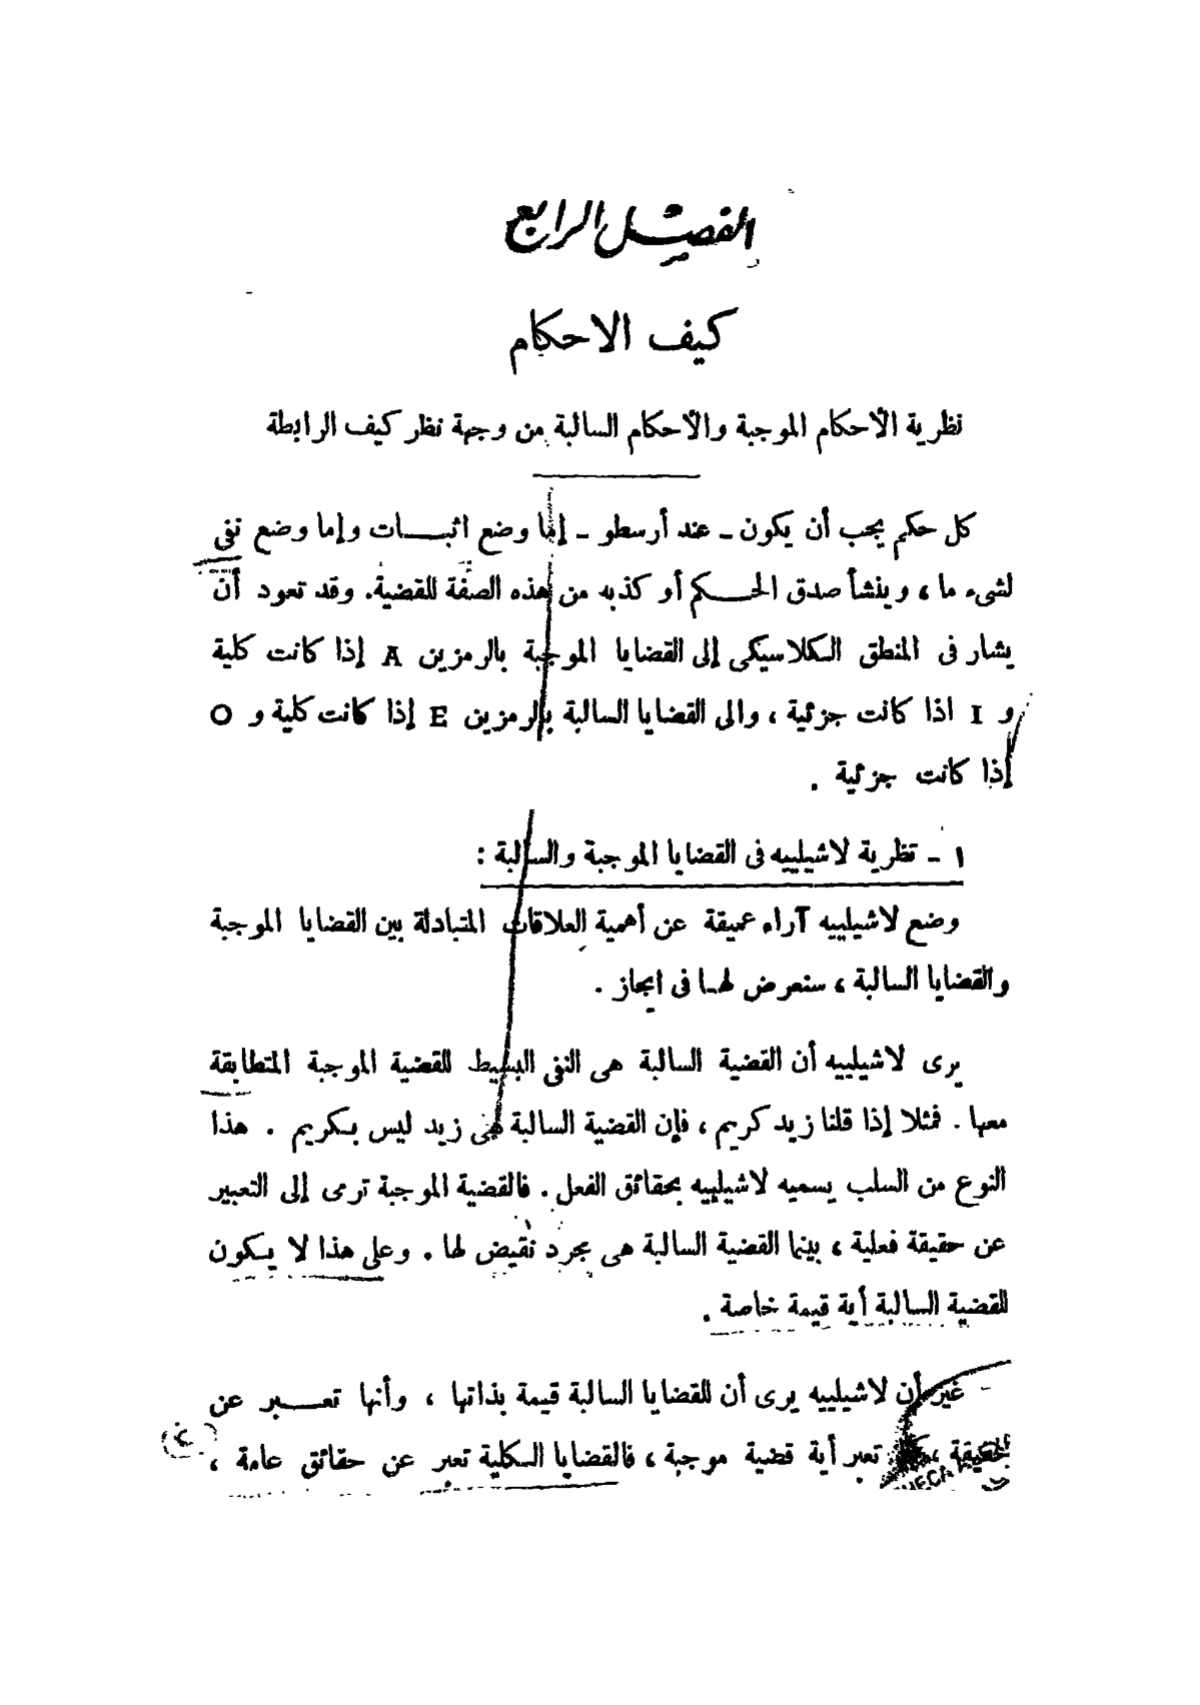 الفصل الرابع
كيف الاحكام
نظرية الأحكام الموجبة والأحكام السالبة من وجهة نظر كيف الرابطة
كل حكم يجب أن يكون - عند أرسطو - إما وضع اثبـــات وإما وضع نفى
لشىء ما ، وينشأ صدق الحـــكم أو كذبه من هذه الصفة للقضية. وقد تعود أن
يشار فى المنطق الكلاسيكى إلى القضايا الموجبة بالرمزين A إذا كانت كلية
و I اذا كانت جزئية ، والى القضايا السالبة بالرمزين E إذا كانت كلية و O
إذا كانت جزئية .
١ - تظرية لاشيلييه فى القضايا الموجبة والسالبة :
وضع لاشيلييه آراء عميقة عن أهمية العلاقات المتبادلة بين القضايا الموجبة
والقضايا السالبة ، سنعرض لهـا فى ايجاز .
يرى لاشيلييه أن القضية السالبة هى النفى البسيط للقضية الموجبة المتطابقة
معها . فمثلا إذا قلنا زيد كريم ، فإن القضية السالبة هى زيد ليس بكريم . هذا
النوع من السلب يسميه لاشيلييه بحقائق الفعل . فالقضية الموجبة ترمى إلى التعبير
عن حقيقة فعلية ، بينما القضية السالبة هى مجرد نقيض لها . وعلى هذا لا يكون
للقضية السالبة أية قيمة خاصة .
- غير أن لاشيلييه يرى أن للقضايا السالبة قيمة بذاتها ، وأنها تعـــبر عن
حقيقة ، تعبر أية قضية موجبة ، فالقضايا الكلية تعبر عن حقائق عامة ،